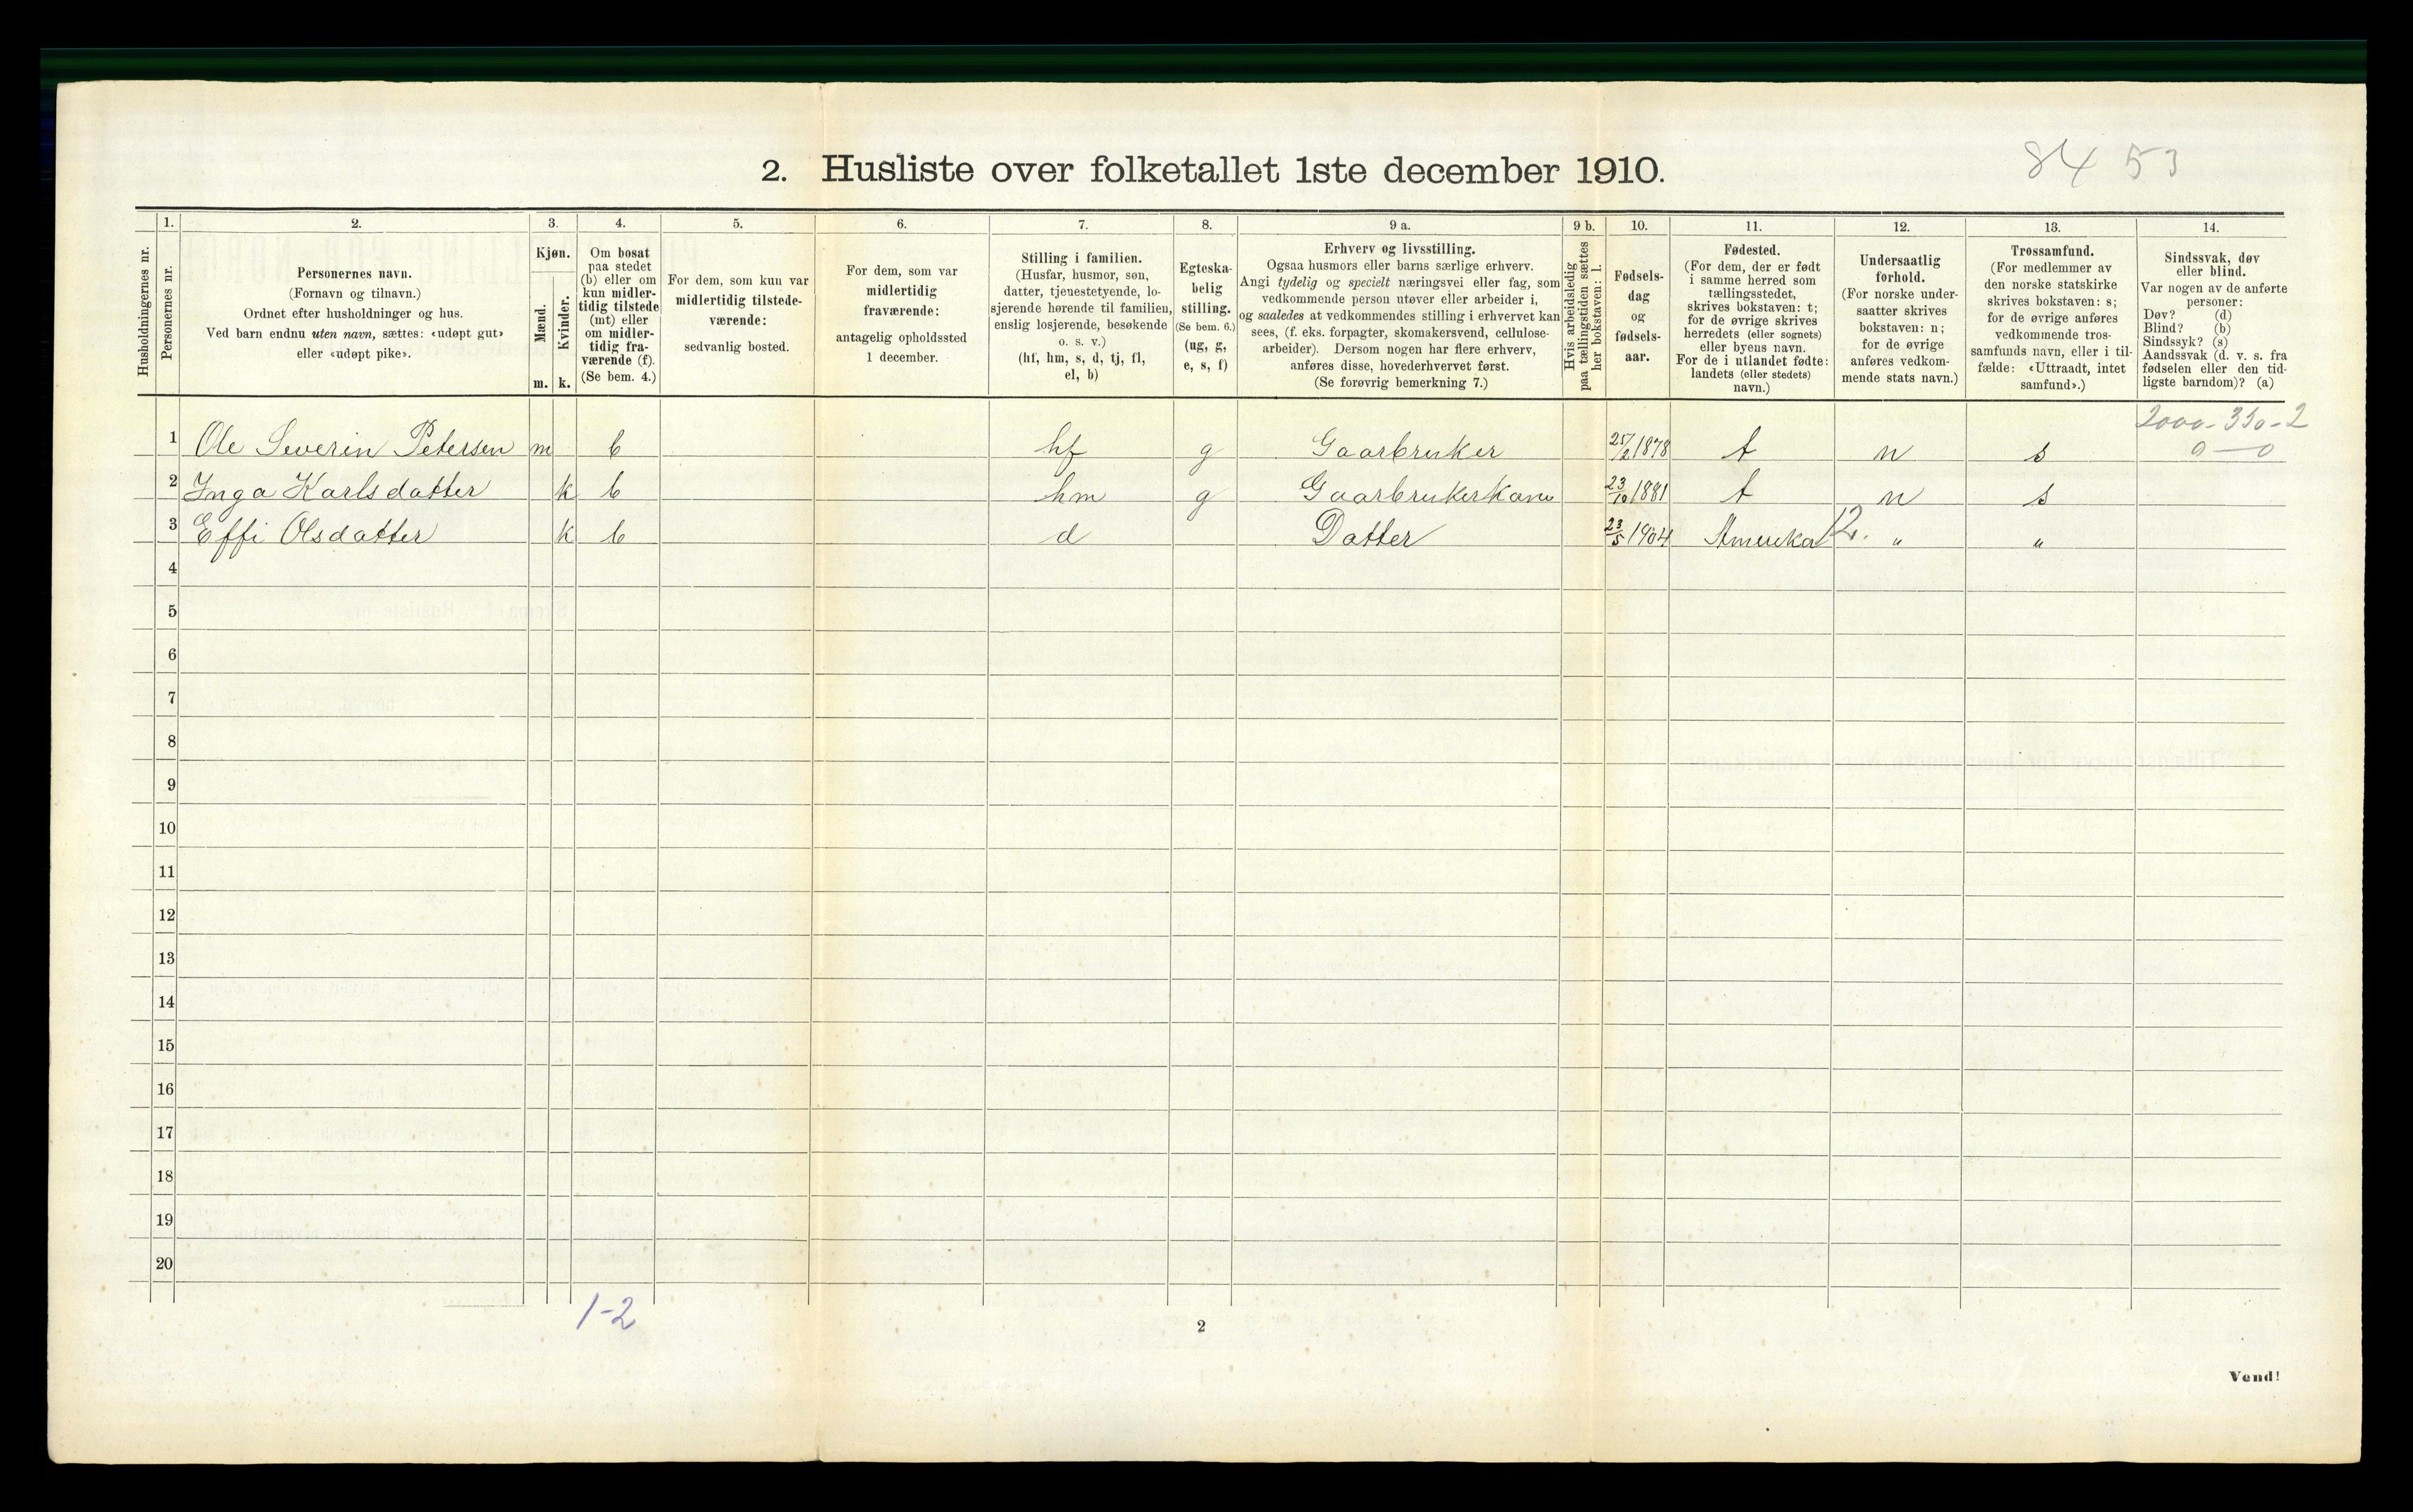 84 53
2. Husliste over folketallet 1ste december 1910.
Husholdningernes nr.
1.
Personernes nr.
2.
Personernes navn.
(Fornavn og tilnavn.)
Ordnet efter husholdninger og hus.
Ved barn endnu uten navn, sættes: «udøpt gut»
eller «udøpt pike».
3.
Kjøn.
Mænd.
Kvinder.
m. k.
4.
Om bosat
paa stedet
(b) eller om
kun midler-
tidig tilstede
(mt) eller
om midler-
tidig fra-
værende (f).
(Se bem. 4.)
5.
For dem, som kun var
midlertidig tilstede-
værende:
sedvanlig bosted.
6.
For dem, som var
midlertidig
fraværende:
antagelig opholdssted
1 december.
7.
Stilling i familien.
(Husfar, husmor, søn,
datter, tjenestetyende, lo-
sjerende hørende til familien,
enslig losjerende, besøkende
o. s. v.)
(hf, hm, s, d, tj, fl,
el, b)
8.
Egteska-
belig
stilling.
(Se bem. 6.)
(ug, g,
e, s, f)
9 a.
Erhverv og livsstilling.
Ogsaa husmors eller barns særlige erhverv.
Angi tydelig og specielt næringsvei eller fag, som
vedkommende person utøver eller arbeider i,
og saaledes at vedkommendes stilling i erhvervet kan
sees, (f. eks. forpagter, skomakersvend, cellulose-
arbeider). Dersom nogen har flere erhverv,
anføres disse, hovederhvervet først.
(Se forøvrig bemerkning 7.)
9 b.
Hvis arbeidsledig
paa tællingstiden sættes
her bokstaven: l.
10.
Fødsels-
dag
og
fødsels-
aar.
11.
Fødested.
(For dem, der er født
i samme herred som
tællingsstedet,
skrives bokstaven: t;
for de øvrige skrives
herredets (eller sognets)
eller byens navn.
For de i utlandet fødte:
landets (eller stedets)
navn.)
12.
Undersaatlig
forhold.
(For norske under-
saatter skrives
bokstaven: n;
for de øvrige
anføres vedkom-
mende stats navn.)
13.
Trossamfund.
(For medlemmer av
den norske statskirke
skrives bokstaven: s;
for de øvrige anføres
vedkommende tros-
samfunds navn, eller i til-
fælde: «Uttraadt, intet
samfund».)
14.
Sindssvak, døv
eller blind.
Var nogen av de anførte
personer:
Døv? (d)
Blind? (b)
Sindssyk? (s)
Aandssvak (d. v. s. fra
fødselen eller den tid-
ligste barndom)? (a)
2000-350-2
0—0
1 Ole Severin Petersen m b hf g Gaarbruker 25/2 1878 t n s
2 Inga Karlsdatter k b hm g Gaarbrukerkone 23/10 1881 t n s
3 Effi Olsdatter k b d Datter 23/5 1904 Amerika 12. " "
4
5
6
7
8
9
10
11
12
13
14
15
16
17
18
19
20
1-2
2
Vend!